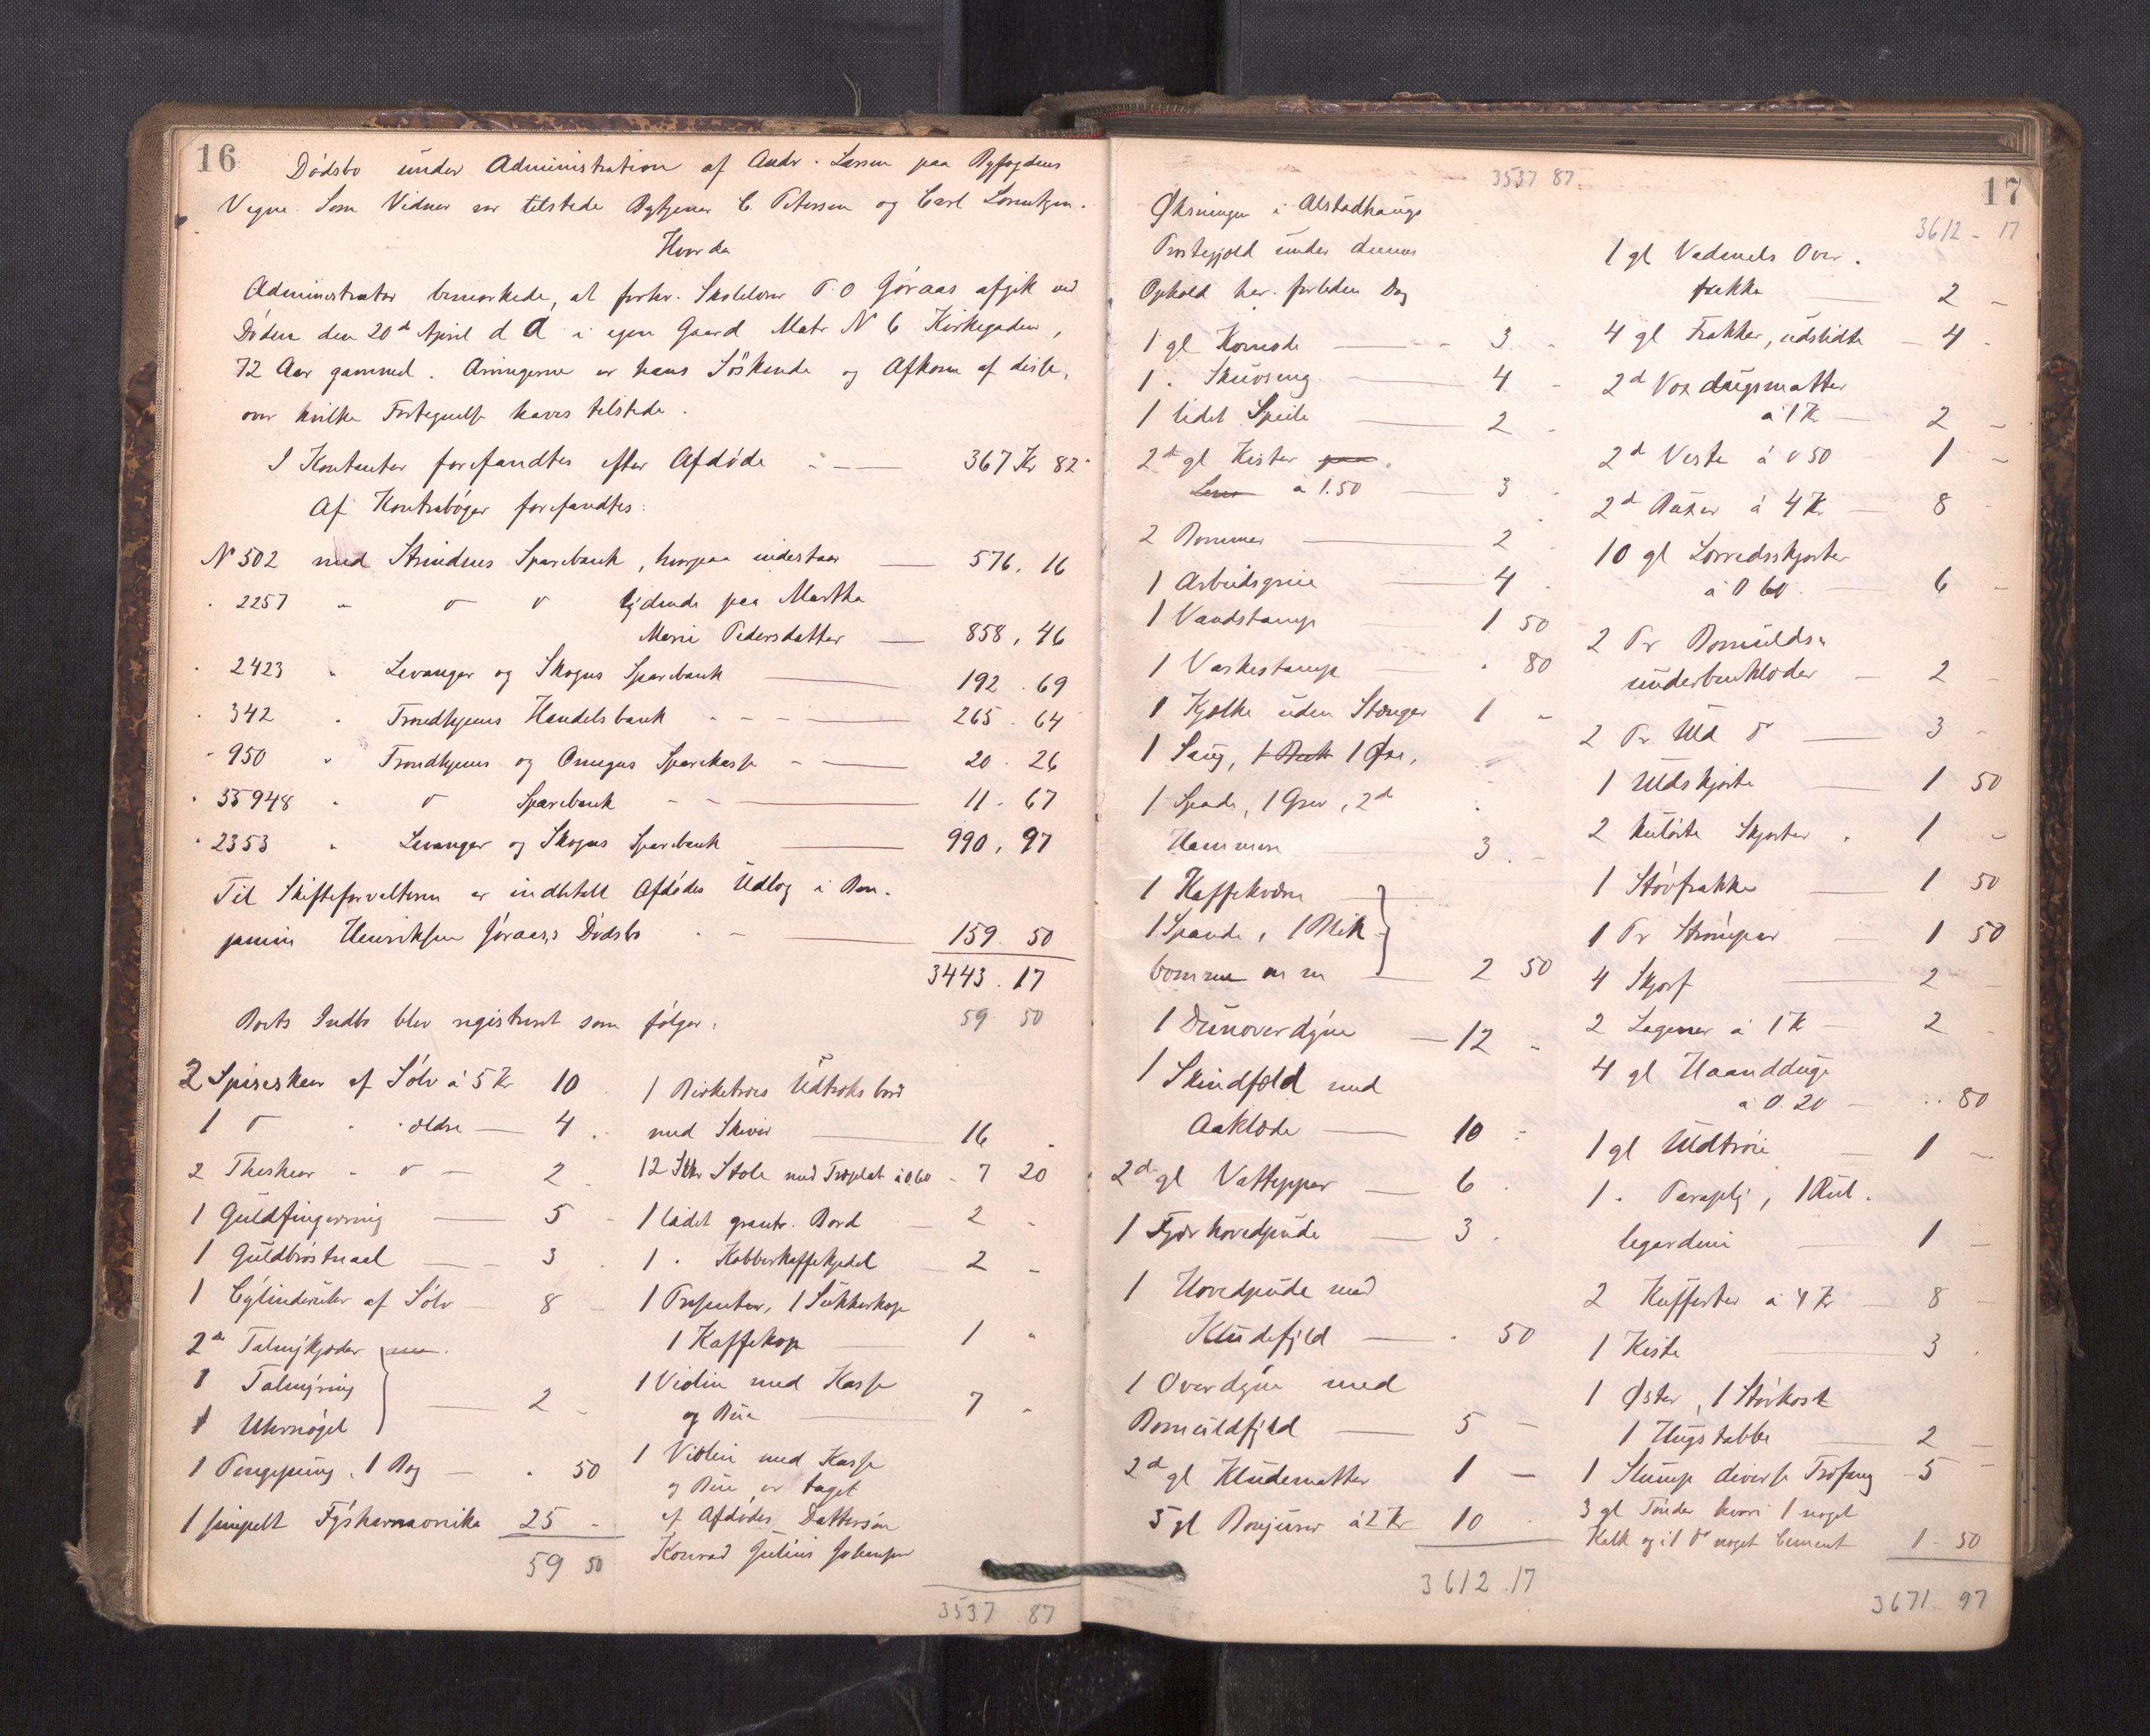 16
Dödsbo under Administration af Andr. Larsen paa Byfogdens
Vegne. Som Vidner var tilstede Bytjener C. Petersen og Carl Lorentzen.
Hvorda
Administrator bemærkede, at forhv. Skolelærer P. O Gjöraas afgik ved
Döden den 20d April d A i egen Gaard Matr N 6 Kirkegaden,
72 Aar gammel. Arvingerne er hans Söskende og Afkom af disse,
over hvilke Fortegnelse haves tilstede.
I Kontanter forefandtes efter Afdöde — 367 Kr 82
Af Kontrabøger forefandtes:
N 502 med Strindens Sparebank, hvorpaa indestaar — 576. 16
2257 " d d lydende paa Martha
Marie Pedersdatter — 858, 46
2423 " Levanger og Skogns Sparebank — 192. 69
342 " Trondhjems Handelsbank — 265. 64
950 " Trondhjems og Omegns Sparekasse — 20. 26
35948 " d Sparebank — 11. 67
2353 " Levanger og Skogns Sparebank — 990, 97
Til Skifteforvalteren er indbetalt Afdödes Udlog i Ben-
jamin Henriksen Gjöraas's Dödsbo — 159. 50
3443. 17
Boets Indbo blev registreret som fölger:
59 50
2 Spiseskeer af Sölv á 5 Kr 10
1 d " ældre — 4
2 Theskeer " d — 2
1 Guldfingerring — 5
1 Guldbröstnaal — 3
1 Cylinderuhr af Sölv — 8
2de Talmykjæder
1 Talmyring
1 Uhrnögel — 2
1 Pengepung, 1 Bog — . 50
1 simpelt Fysharmonika 25
59 50
1 Birketræes Udtræksbord
med Skiver — 16
12 Stkr Stole med Træplat á 0 60 - 7 20
1 lidet grantr. Bord — 2
1 . Kobberkaffekjedel — 2
1 Presenter, 1 Sukkerkop
1 Kaffekop — 1
1 Violin med Kasse
og Bue — 7
1 Violin med Kasse
og Bue er taget
af Afdödes Dattersön
Konrad Julius Johansen
3537 87
17
3537 87
Øksningen i Alstadhaugs
Præstegjeld under dennes
Ophold her forleden Dag
1 gl Komode — 3
1 . Skuvseng — 4
1 lidet Speile — 2
2d gl Kister
á 1.50 — 3
2 Bommer — 2
1 Arbeidsgreie — 4
1 Vandstamp — 1 50
1 Vaskestamp — . 80
1 Kjælke uden Stænger 1
1 Saug, 1 Øxe,
1 Spade, 1 Grev, 2d
Hammere 3
1 Kaffekværn
1 Spande, 1 Blik
bomme m m — 2 50
1 Dunoverdyne — 12
1 Skindfæld med
Aaklæde — 10
2d gl Vattepper — 6
1 Fjærhovedpude — 3
1 Hovedpude med
Kludefyld — . 50
1 Overdyne med
Bomuldfyld — 5
2d gl Kludematter 1
5 gl Bonjurer á 2 Kr 10
3612. 17
3612 - 17
1 gl Vadmels Over-
frakke — 2
4 gl Frakker, udslidte — 4
2d Voxdugsmatter
á 1 Kr — 2
2d Veste á 0 50 — 1
2d Buxer á 4 Kr — 8
10 gl Lærredsskjorter
á 0 60 — 6
2 Pr Bomulds-
underbenklæder — 2
2 Pr Uld d — 3
1 Uldskjorte — 1 50
2 kulörte Skjorter 1
1 Stövfrakke — 1 50
1 Pr Strömper — 1 50
4 Skjærf — 2
2 Lagener á 1 Kr — 2
4 gl Haandduge
á 0. 20 — . 80
1 gl Uldtröie — 1
1 . Paraply, 1 Rul-
legardin — 1
2 Kufferter á 4 Kr — 8
1 Kiste — 3
1 Øster, 1 Stövkost
1 Hugstabbe — 2
1 Slump diverse Træfang — 5
3 gl Tönder hvori 1 noget
Kalk og i 1 d noget Cement 1 - 50
3671 97